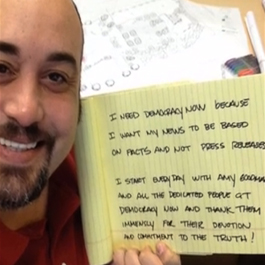 I NEED DEMOCRACY NOW BECAUSE
I WANT MY NEWS TO BE BASED
ON FACTS AND NOT PRESS RELEASES
I START EVERYDAY WITH AMY GOODMAN
AND ALL THE DEDICATED PEOPLE AT
DEMOCRACY NOW AND THANK THEM
IMMENSLY FOR THEIR DEVOTION
AND COMMITMENT TO THE TRUTH!